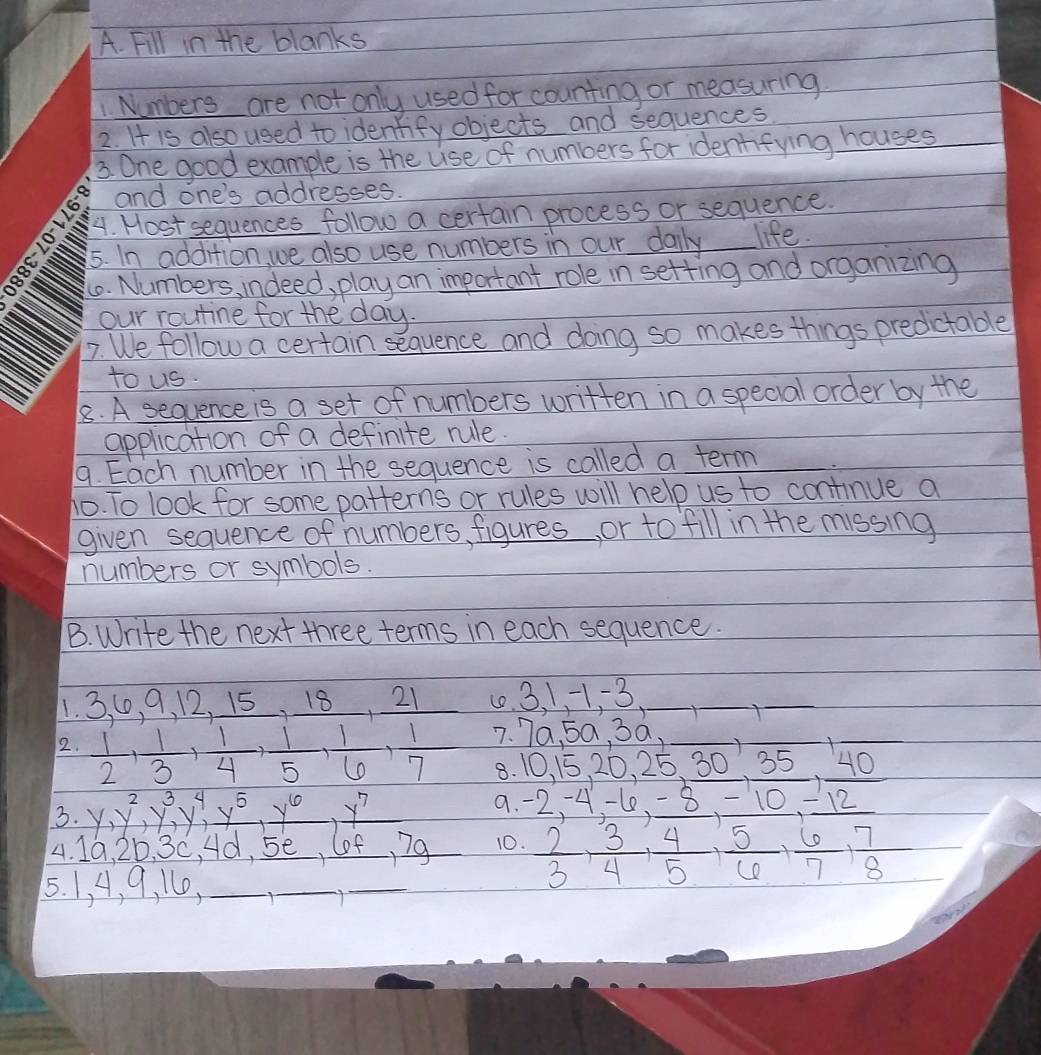 A. Fill in the blanks
1. Numbers are not only used for counting or measuring.
2. It is also used to identify objects and sequences.
3. One good example is the use of numbers for identifying houses
and one's addresses.
4. Most sequences follow a certain process or sequence.
5. In addition, we also use numbers in our daily life.
6. Numbers, indeed, play an important role in setting and organizing
our routine for the day.
7. We follow a certain sequence and doing so makes things predictable
to us.
8. A sequence is a set of numbers written in a special order by the
application of a definite rule.
9. Each number in the sequence is called a term.
10. To look for some patterns or rules will help us to continue a
given sequence of numbers, figures, or to fill in the missing
numbers or symbols.
B. Write the next three terms in each sequence.
1. 3, 6, 9, 12, 15, 18, 21
2. 1/2, 1/3, 1/4, 1/5, 1/6, 1/7
3. y, y², y³, y⁴, y⁵, y⁶, y⁷
4. 1a, 2b, 3c, 4d, 5e, 6f, 7g
5. 1, 4, 9, 16, __, __, __
6. 3, 1, -1, -3, __, __, __
7. 7a, 5a, 3a, __, __, __
8. 10, 15, 20, 25, 30, 35, 40
9. -2, -4, -6, -8, -10, -12
10. 2/3, 3/4, 4/5, 5/6, 6/7, 7/8